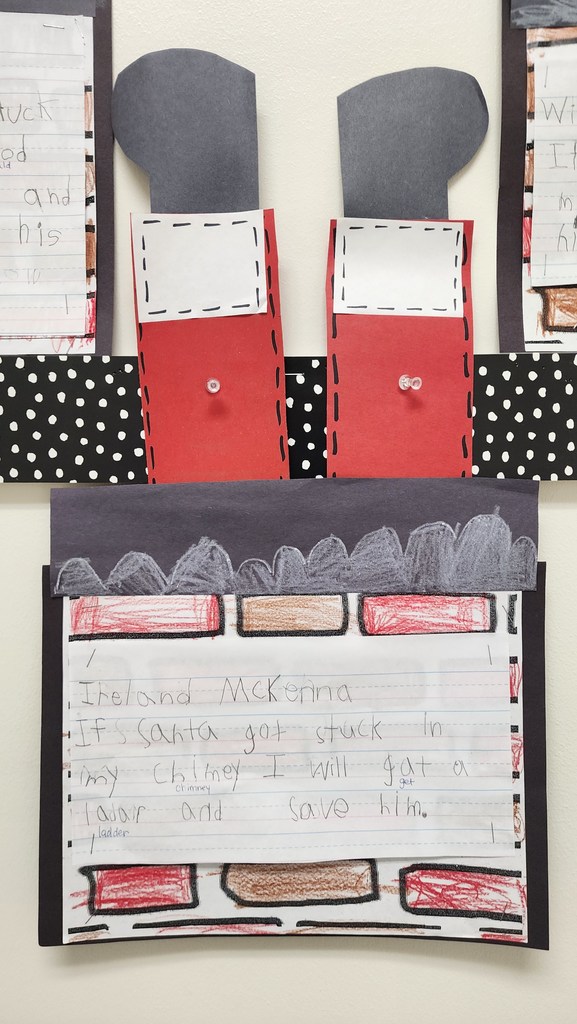 tuck
od
ld
and
his
Wi
If
m
hi
Ireland McKenna
If Santa got stuck In
my chimey I will gat a
chimney get
ladair and save him.
ladder